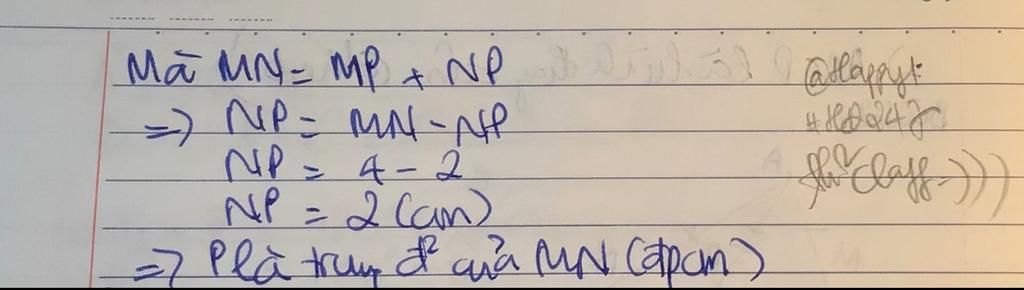 Mà MN = MP + NP
=> NP = MN - NP
NP = 4 - 2
NP = 2 (cm)
=> P là trung đ² của MN (đpcm)